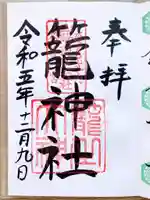 奉拝
籠神社
令和五年十二月九日